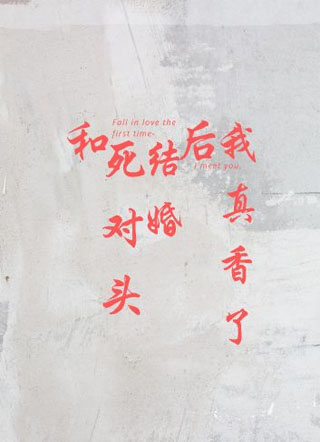 和死对头结婚后我真香了
Fall in love the
first time-
I meet you.